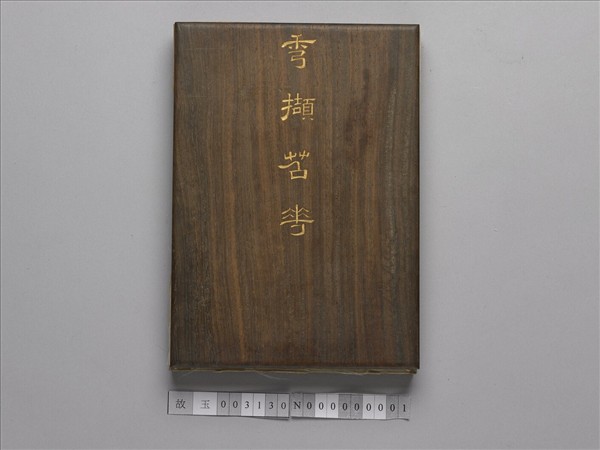 秀擷苕華
故玉003130N000000001